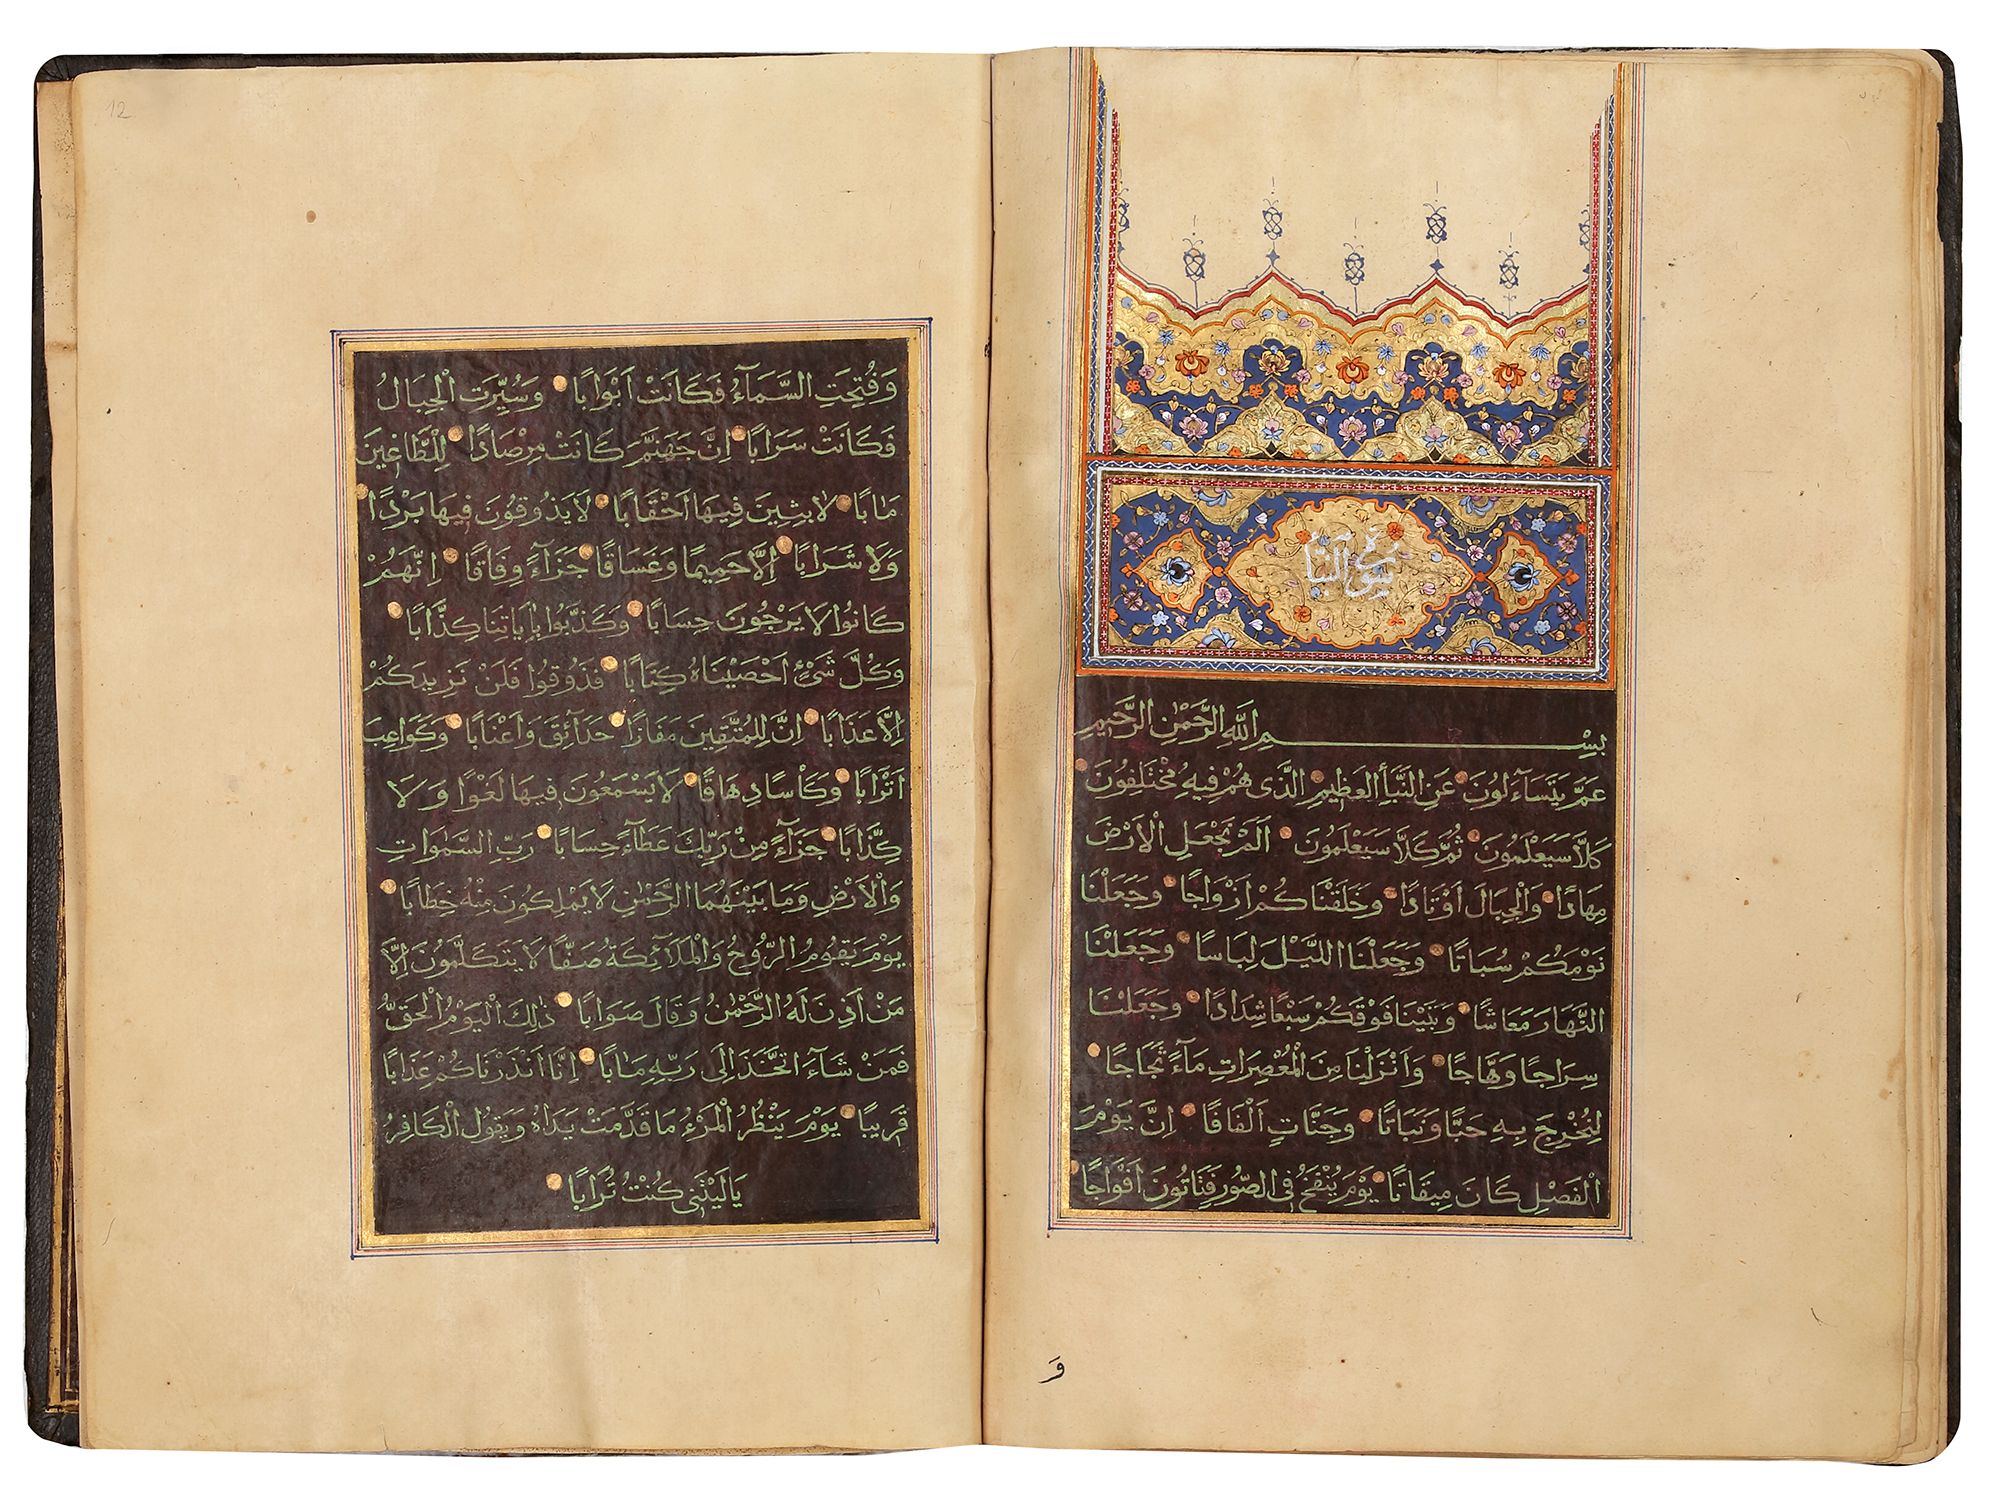 سورة النبأ
بِسْمِ اللّٰهِ الرَّحْمٰنِ الرَّحِيمِ
عَمَّ يَتَسَآءَلُونَ عَنِ النَّبَأِ الْعَظِيمِ الَّذِى هُمْ فِيهِ مُخْتَلِفُونَ
كَلَّا سَيَعْلَمُونَ ثُمَّ كَلَّا سَيَعْلَمُونَ اَلَمْ نَجْعَلِ الْاَرْضَ
مِهَادًا وَالْجِبَالَ اَوْتَادًا وَخَلَقْنَاكُمْ اَزْوَاجًا وَجَعَلْنَا
نَوْمَكُمْ سُبَاتًا وَجَعَلْنَا اللَّيْلَ لِبَاسًا وَجَعَلْنَا
النَّهَارَ مَعَاشًا وَبَنَيْنَا فَوْقَكُمْ سَبْعًا شِدَادًا وَجَعَلْنَا
سِرَاجًا وَهَّاجًا وَاَنْزَلْنَا مِنَ الْمُعْصِرَاتِ مَآءً ثَجَّاجًا
لِنُخْرِجَ بِهِ حَبًّا وَنَبَاتًا وَجَنَّاتٍ اَلْفَافًا اِنَّ يَوْمَ
الْفَصْلِ كَانَ مِيقَاتًا يَوْمَ يُنْفَخُ فِى الصُّورِ فَتَاْتُونَ اَفْوَاجًا
وَ
12
وَفُتِحَتِ السَّمَآءُ فَكَانَتْ اَبْوَابًا وَسُيِّرَتِ الْجِبَالُ
فَكَانَتْ سَرَابًا اِنَّ جَهَنَّمَ كَانَتْ مِرْصَادًا لِلْطَّاغِينَ
مَاٰبًا لَابِثِينَ فِيهَا اَحْقَابًا لَا يَذُوقُونَ فِيهَا بَرْدًا
وَلَا شَرَابًا اِلَّا حَمِيمًا وَغَسَاقًا جَزَآءً وِفَاقًا اِنَّهُمْ
كَانُوا لَا يَرْجُونَ حِسَابًا وَكَذَّبُوا بِاٰيَاتِنَا كِذَّابًا
وَكُلَّ شَىْءٍ اَحْصَيْنَاهُ كِتَابًا فَذُوقُوا فَلَنْ نَزِيدَكُمْ
اِلَّا عَذَابًا اِنَّ لِلْمُتَّقِينَ مَفَازًا حَدَآئِقَ وَاَعْنَابًا وَكَوَاعِبَ
اَتْرَابًا وَكَاْسًا دِهَاقًا لَا يَسْمَعُونَ فِيهَا لَغْوًا وَلَا
كِذَّابًا جَزَآءً مِنْ رَبِّكَ عَطَآءً حِسَابًا رَبِّ السَّمٰوَاتِ
وَالْاَرْضِ وَمَا بَيْنَهُمَا الرَّحْمٰنِ لَا يَمْلِكُونَ مِنْهُ خِطَابًا
يَوْمَ يَقُومُ الرُّوحُ وَالْمَلَآئِكَةُ صَفًّا لَا يَتَكَلَّمُونَ اِلَّا
مَنْ اَذِنَ لَهُ الرَّحْمٰنُ وَقَالَ صَوَابًا ذٰلِكَ الْيَوْمُ الْحَقُّ
فَمَنْ شَآءَ اتَّخَذَ اِلٰى رَبِّهِ مَاٰبًا اِنَّا اَنْذَرْنَاكُمْ عَذَابًا
قَرِيبًا يَوْمَ يَنْظُرُ الْمَرْءُ مَا قَدَّمَتْ يَدَاهُ وَيَقُولُ الْكَافِرُ
يَا لَيْتَنِى كُنْتُ تُرَابًا